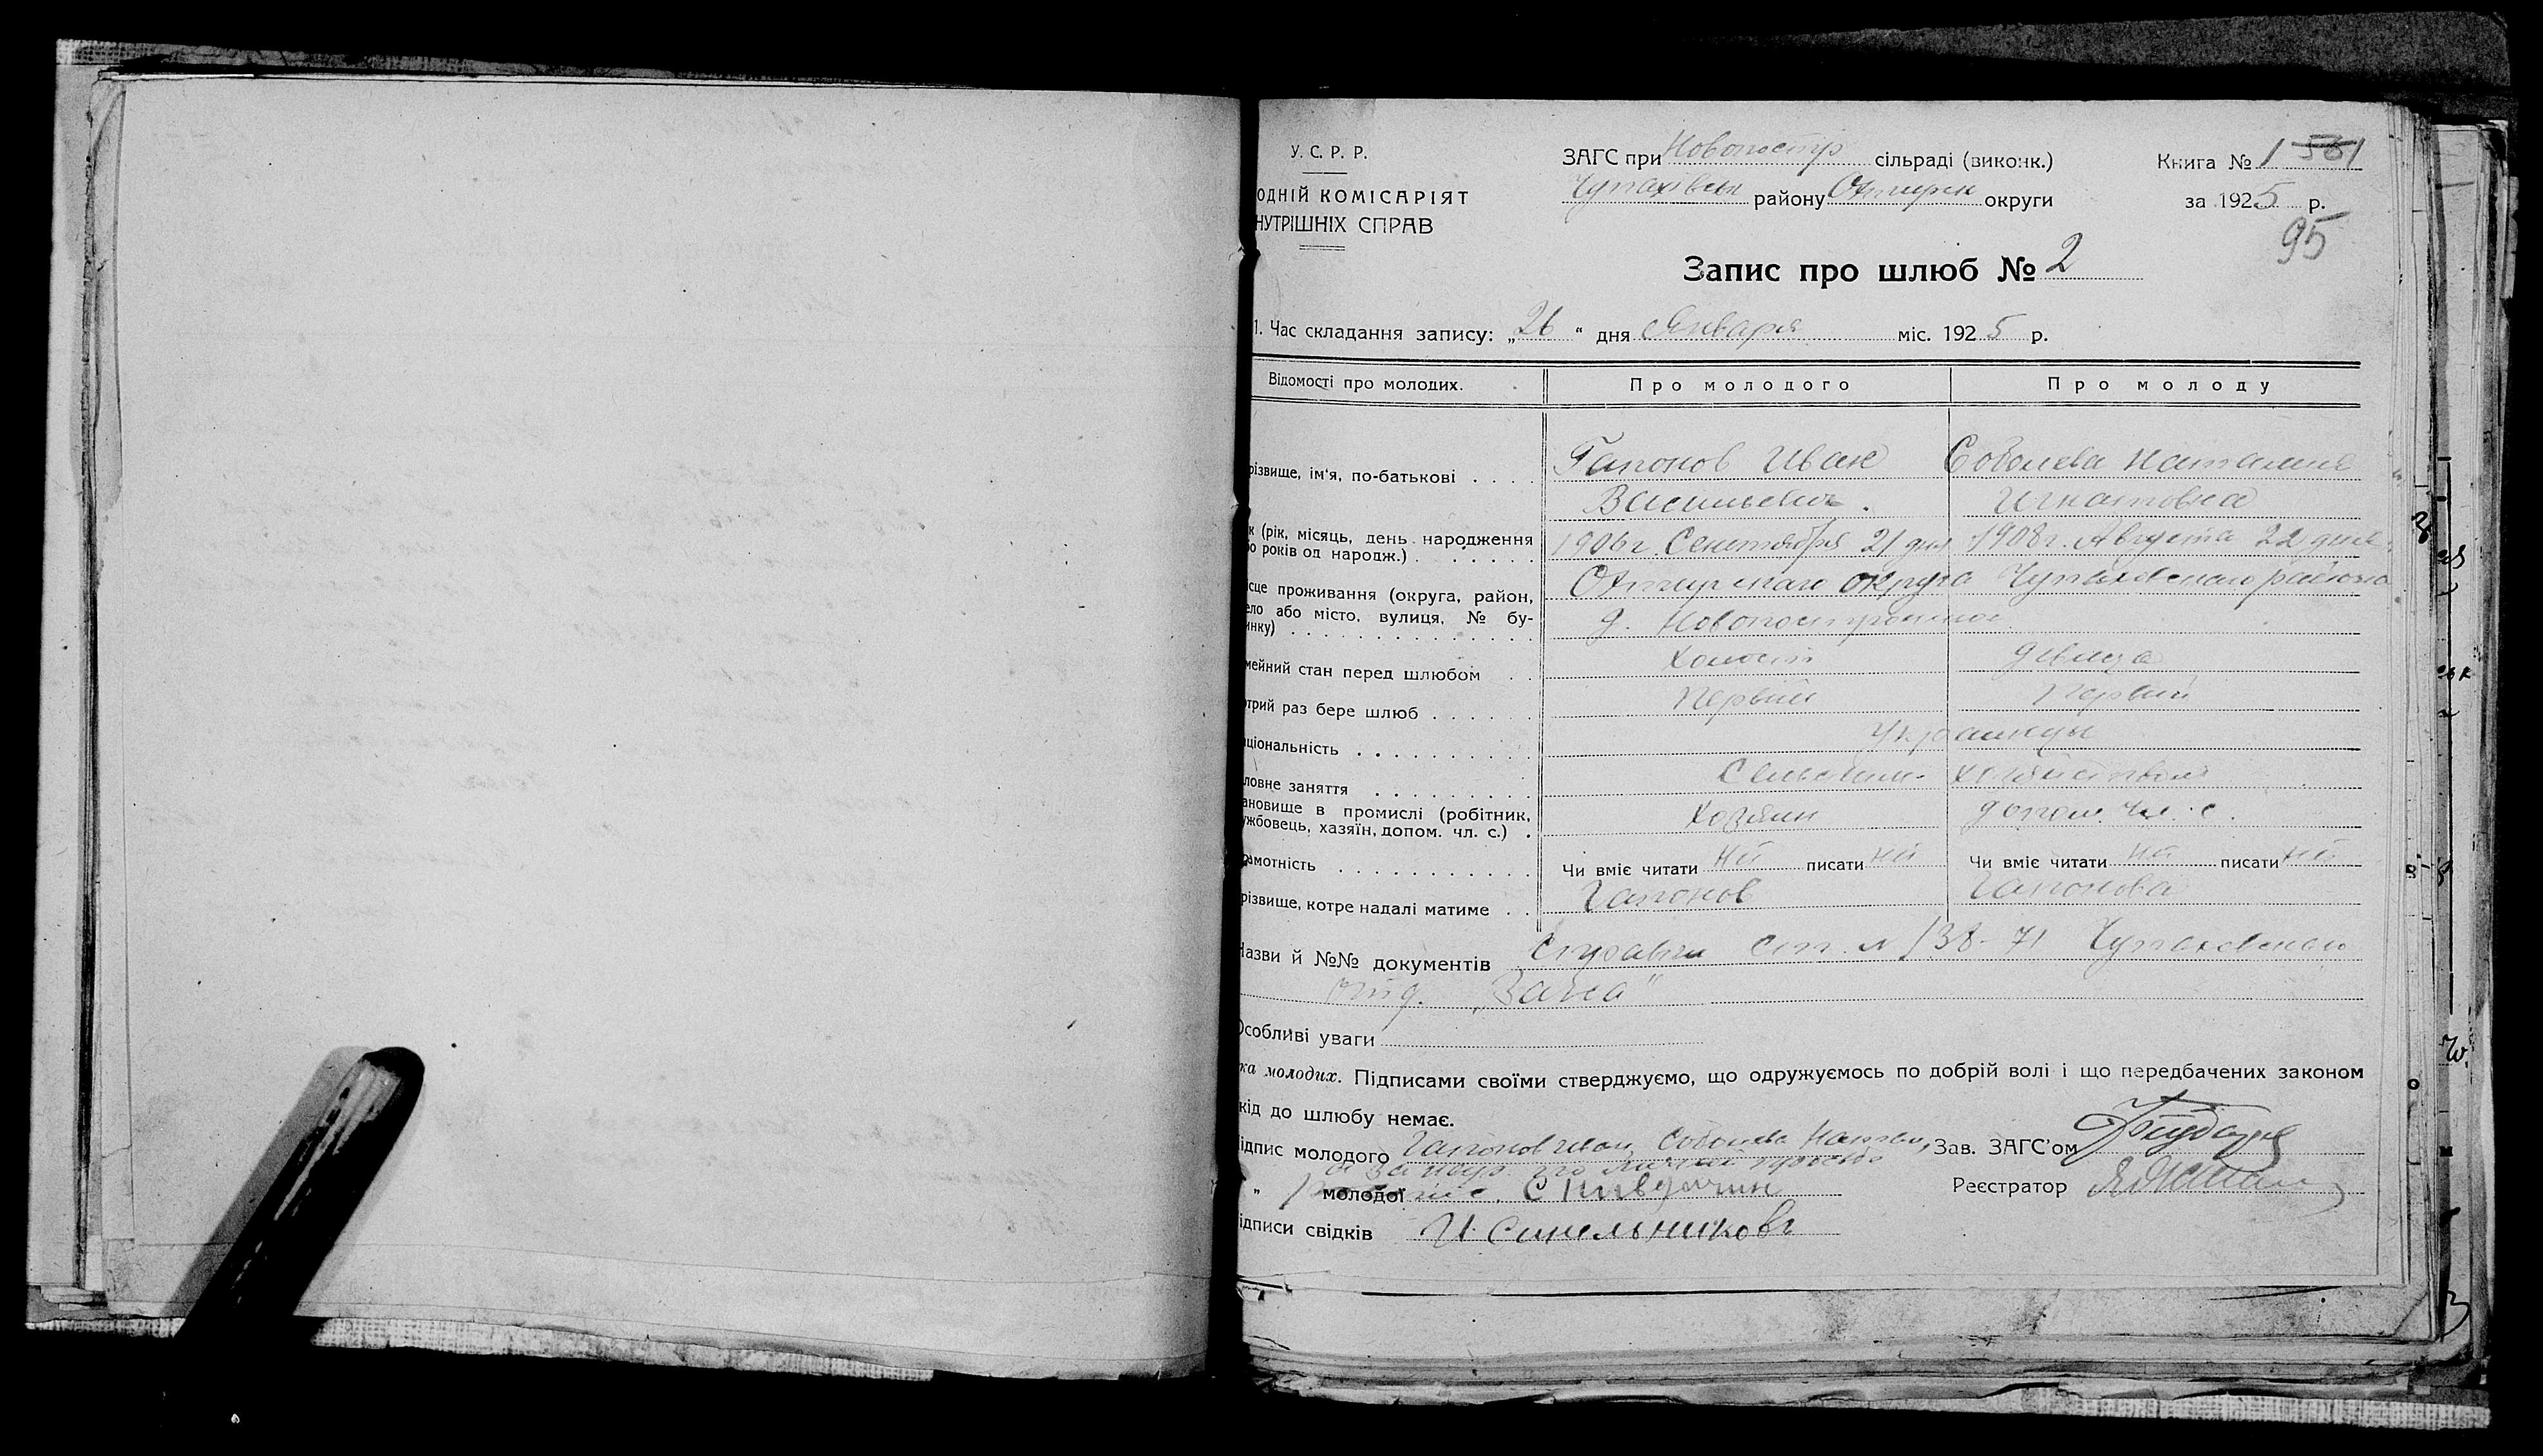 У. С. Р. Р.
ОДНІЙ КОМІСАРІЯТ
НУТРІШНІХ СПРАВ
ЗАГС при Новопостр сільраді (виконк.)
Чупахівськ району Охтирск округи
Книга № 1 581
за 1925 р.
95
Запис про шлюб № 2
1. Час складання запису: „26“ дня Января міс. 1925 р.
Відомості про молодих. Про молодого Про молоду
різвище, ім'я, по-батькові . . . . Гапонов Иван Соболева Наталия
Васильевич. Игнатовна
к (рік, місяць, день народження 1906 г. Сентября 21 дня 1908 г. Августа 22 дня
о років од народж.) . . . . . .
ісце проживання (округа, район, Охтирскаго округа Чупаховскаго района
ело або місто, вулиця, № бу- д. Новопостроенное
инку) . . . . . . . . . . . . . .
мейний стан перед шлюбом . . Холост девица
отрий раз бере шлюб . . . . . . Первый Первый
аціональність . . . . . . . . . . Украинцы
ловне заняття . . . . . . . . . Сельским хозяйством
ановище в промислі (робітник, Хозяин допом. чл. с.
ужбовець, хазяїн, допом. чл. с.) .
рамотність . . . . . . . . . . . Чи вміє читати ні писати ні Чи вміє читати ні писати ні
різвище, котре надалі матиме . . Гапонов Гапонова
Назви й №№ документів Справки Ст. № 138-71 Чупаховского
під. „Загса“
Особливі уваги
ка молодих. Підписами своїми стверджуємо, що одружуємось по добрій волі і що передбачених законом
кід до шлюбу немає.
ідпис молодого Гапонов Иван, Соболева Натал, Зав. ЗАГС'ом
а за негр. по личной просьбе
„ молодої Реєстратор
ідписи свідків И Синельниковъ